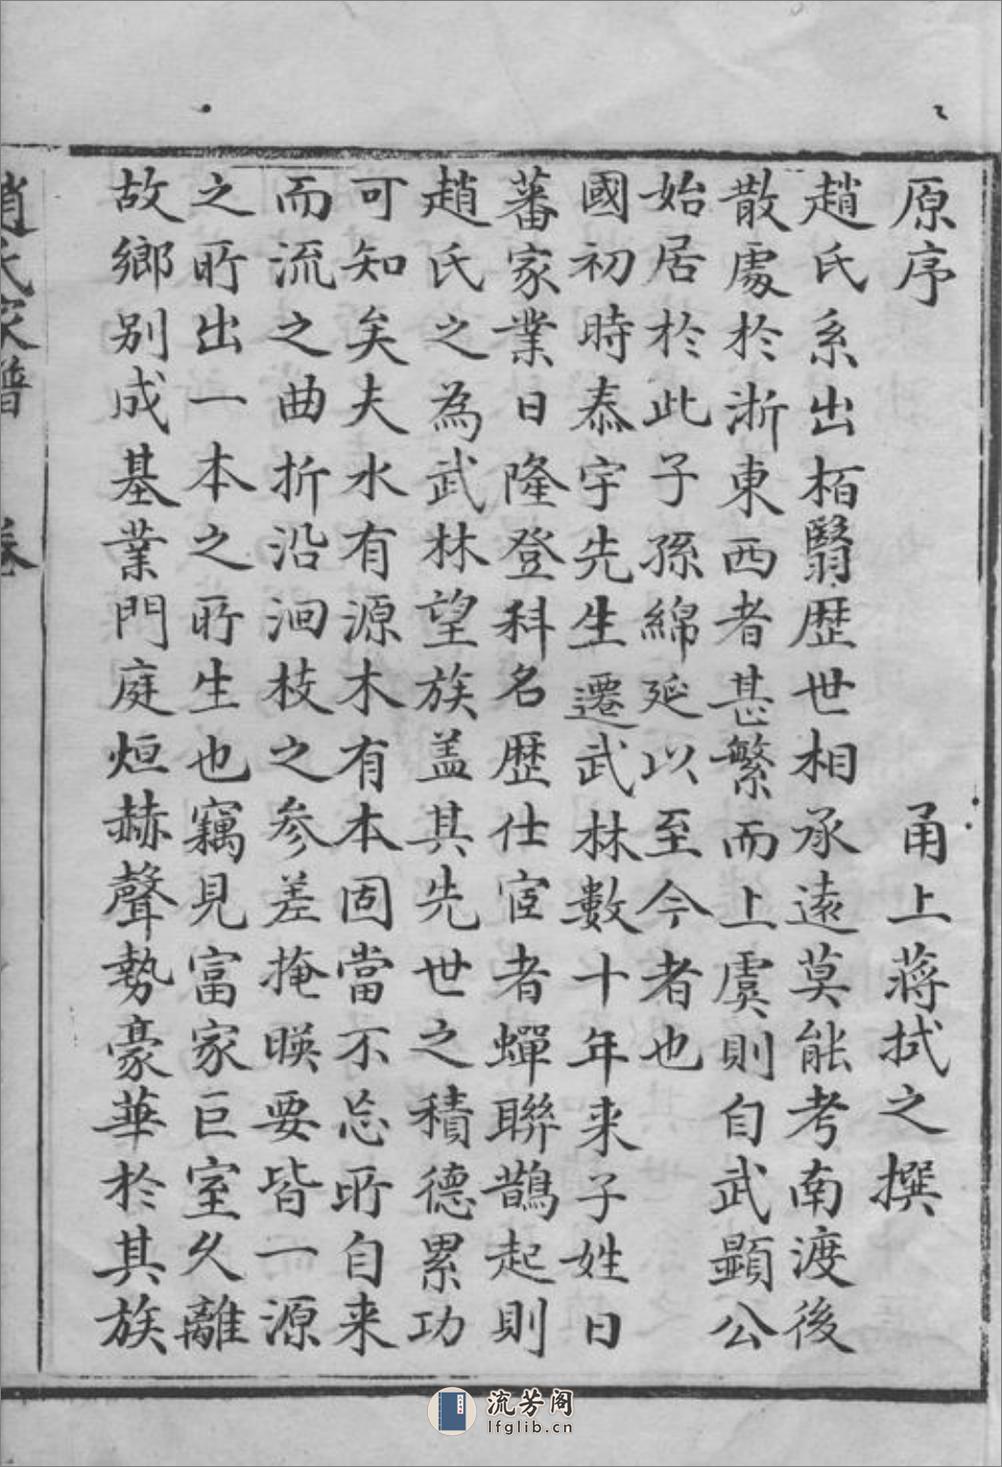 原序
甬上蔣拭之撰
趙氏系出栢翳歴世相承遠莫能考南渡後
散處於浙東西者甚繁而上虞則自武顯公
始居於此子孫綿延以至今者也
國初時泰宇先生遷武林數十年来子姓日
蕃家業日隆登科名歴仕宦者蟬聯鵲起則
趙氏之為武林望族盖其先世之積德累功
可知矣夫水有源木有本固當不忘所自来
而流之曲折沿洄枝之参差掩暎要皆一源
之所出一本之所生也竊見富家巨室久離
故鄉别成基業門庭烜赫聲勢豪華於其族
趙氏家譜 卷
流芳阁
lfglib.cn